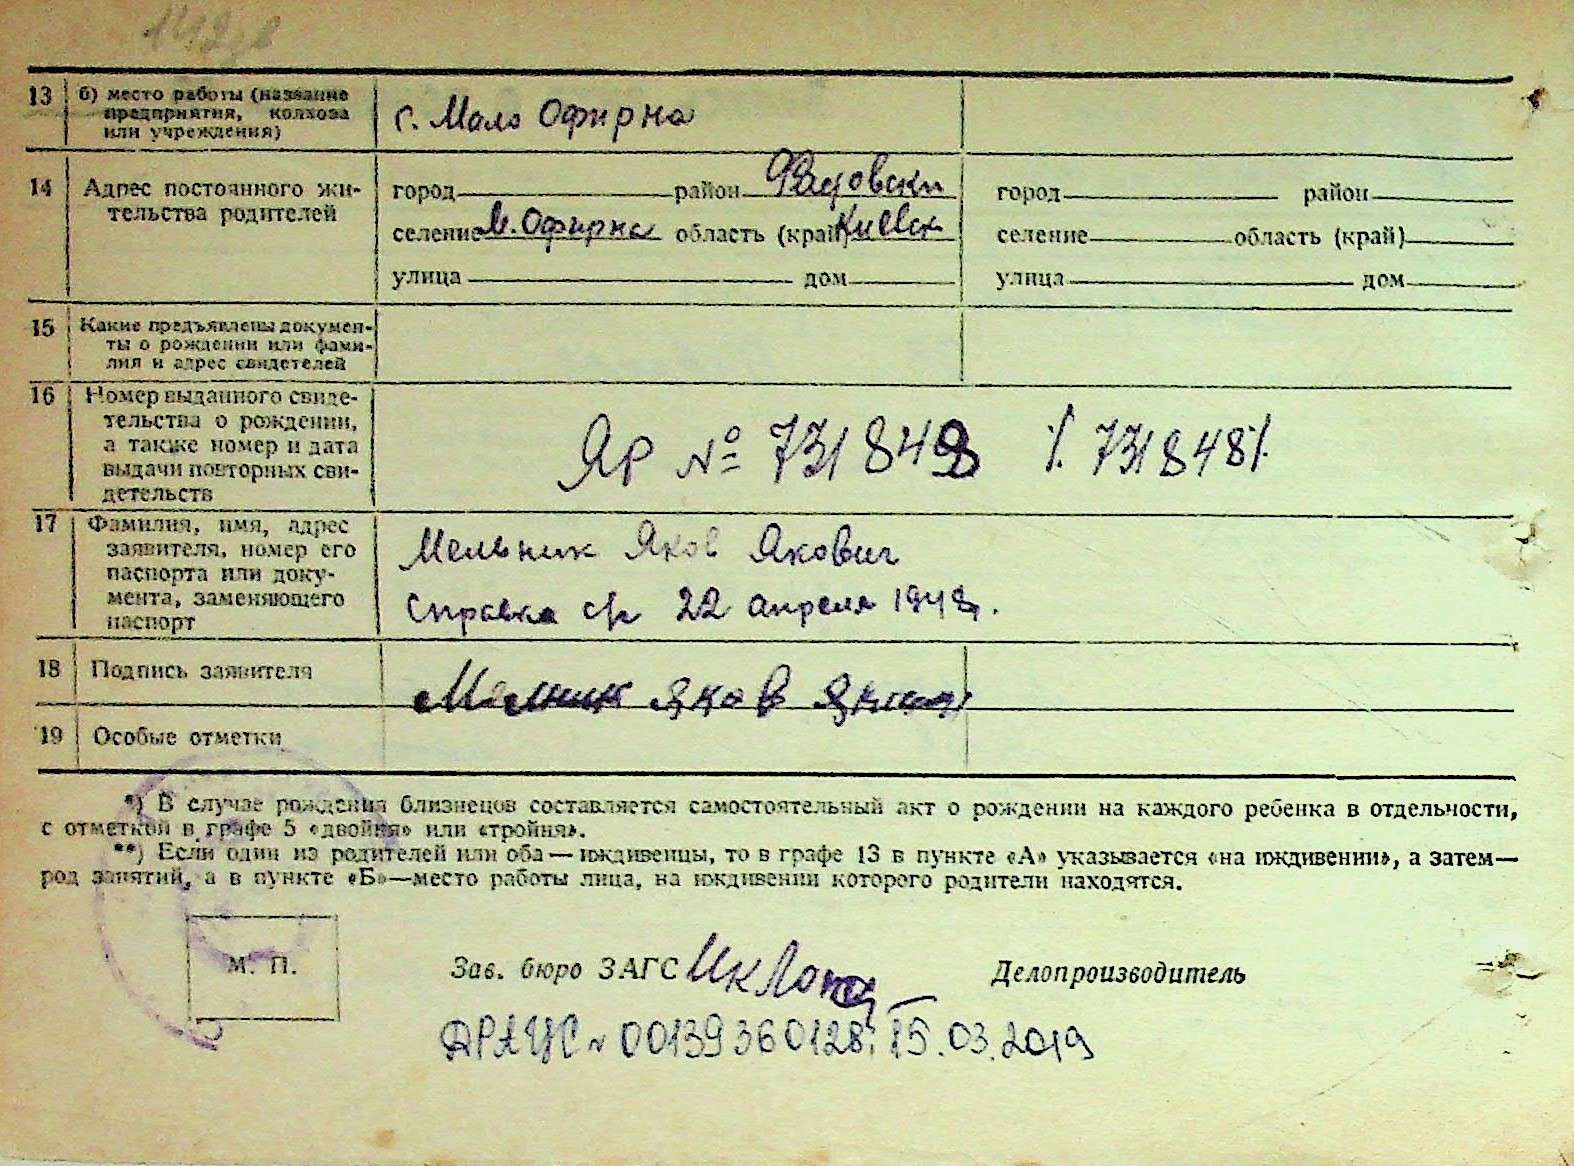 13 б) место работы (название
предприятия, колхоза
или учреждения)
с. Мало Офирна
14 Адрес постоянного жи-
тельства родителей
город район
селение М. Офирна область (край) Киевск
улица дом
город район
селение область (край)
улица дом
15 Какие предъявлены докумен-
ты о рождении или фами-
лия и адрес свидетелей
16 Номер выданного свиде-
тельства о рождении,
а также номер и дата
выдачи повторных сви-
детельств
ЯР № 731848 % 731848 %
17 Фамилия, имя, адрес
заявителя, номер его
паспорта или доку-
мента, заменяющего
паспорт
Мельник Яков Якович
Справка с/р 22 апреля 1948 г.
18 Подпись заявителя
Мелник Яков
19 Особые отметки
*) В случае рождения близнецов составляется самостоятельный акт о рождении на каждого ребенка в отдельности,
с отметкой в графе 5 «двойня» или «тройня».
**) Если один из родителей или оба — иждивенцы, то в графе 13 в пункте «А» указывается «на иждивении», а затем—
род занятий, а в пункте «Б»—место работы лица, на иждивении которого родители находятся.
М. П.
Зав. бюро ЗАГС
Делопроизводитель
ДРАЦС № 00139360128; 15.03.2019